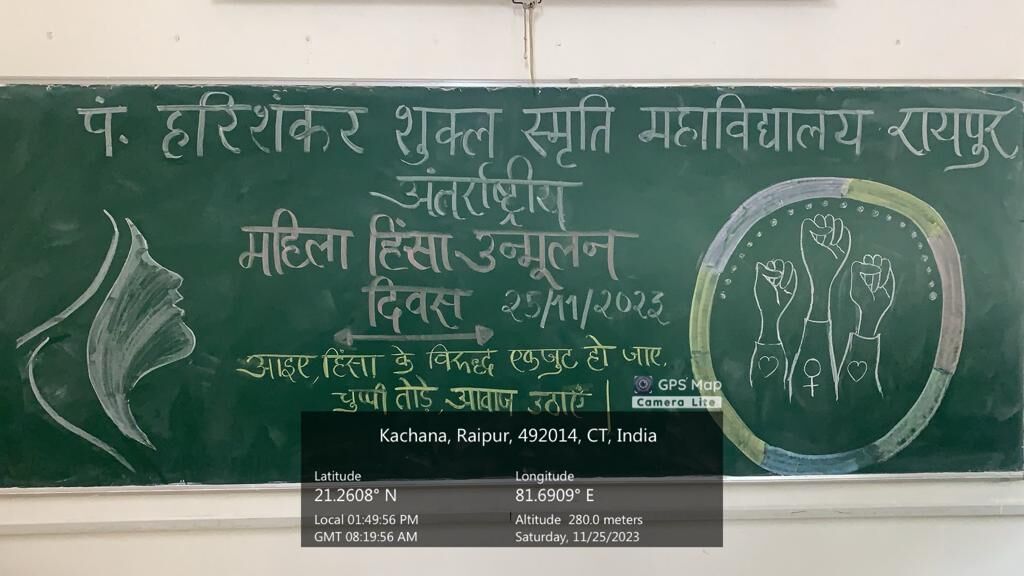 पं. हरिशंकर शुक्ल स्मृति महाविद्यालय रायपुर
अंतर्राष्ट्रीय
महिला हिंसा उन्मूलन
दिवस २५/११/२०२३
आइए, हिंसा के विरूद्ध एकजुट हो जाए,
चुप्पी तोड़े, आवाज उठाएँ |
GPS Map
Camera Lite
Kachana, Raipur, 492014, CT, India
Latitude Longitude
21.2608° N 81.6909° E
Local 01:49:56 PM Altitude 280.0 meters
GMT 08:19:56 AM Saturday, 11/25/2023